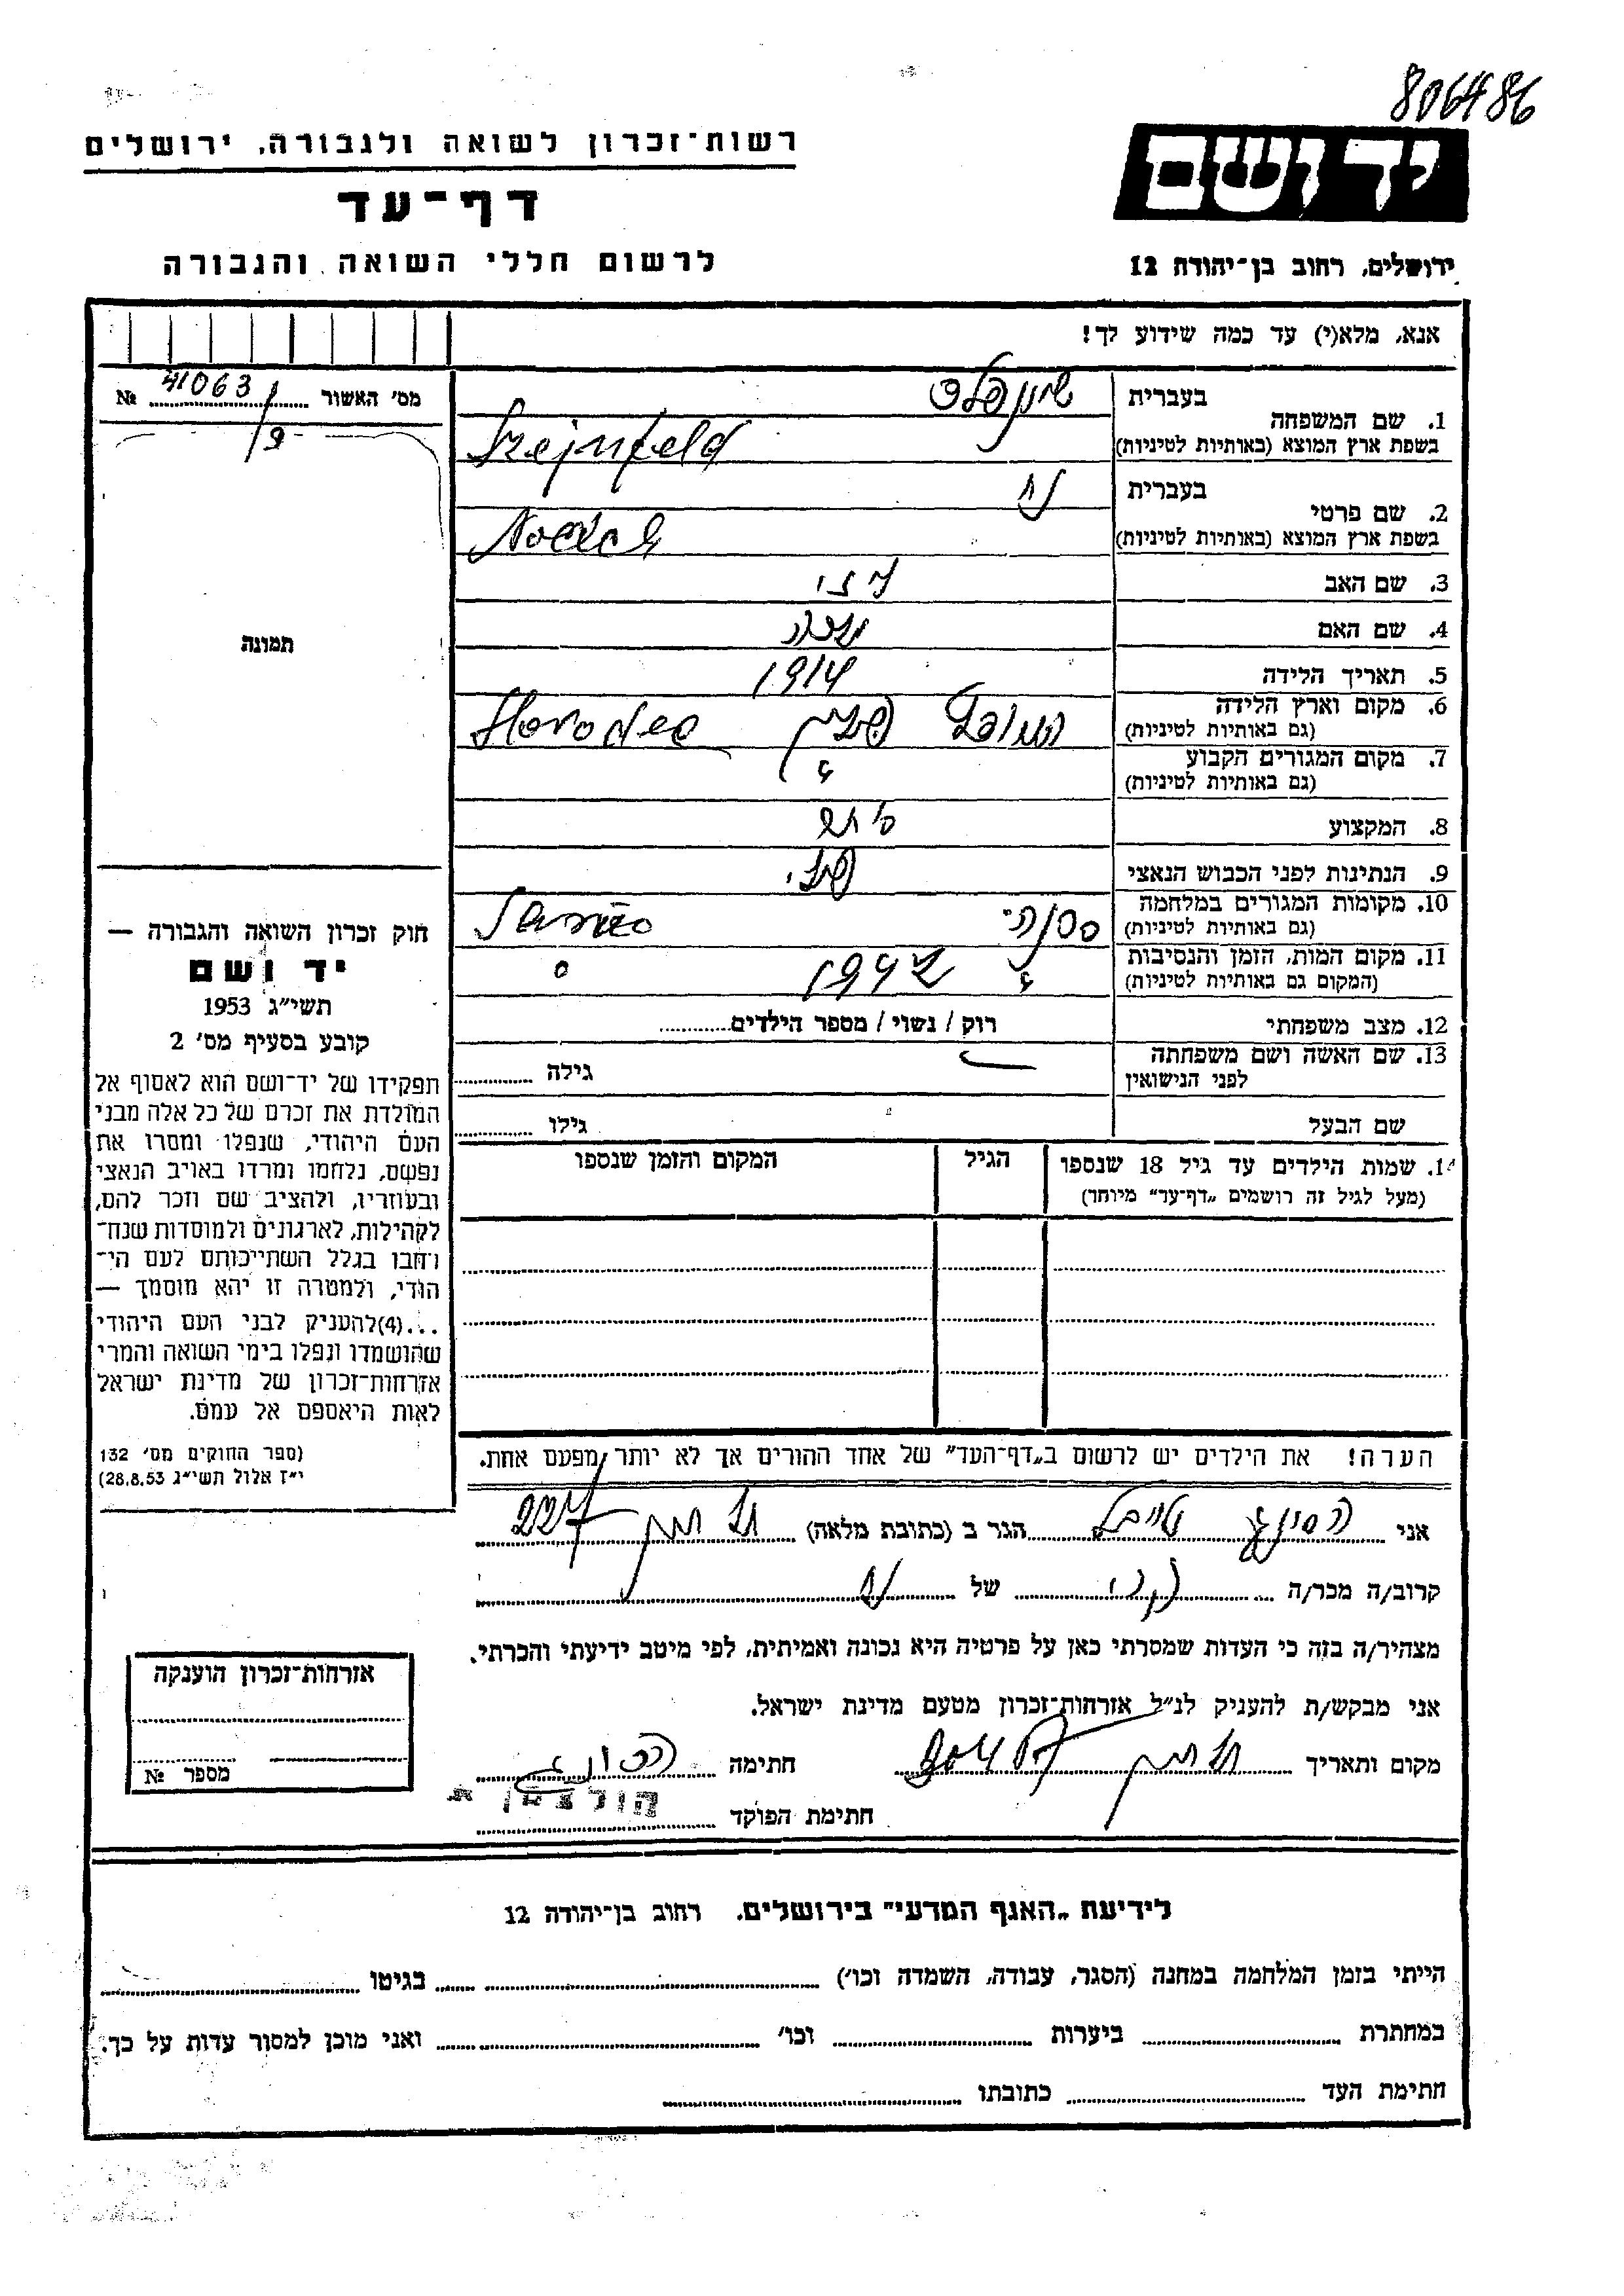 806486
רשות־זכרון לשואה ולגבורה, ירושלים
יד ושם
דף־עד
לרשום חללי השואה והגבורה
ירושלים, רחוב בן־יהודה 12
אנא, מלא(י) עד כמה שידוע לך!
מס׳ האשור 41063 №
9
תמונה
1. שם המשפחה בעברית שיינפלד
בשפת ארץ המוצא (באותיות לטיניות) Szejnfeld
2. שם פרטי בעברית נח
בשפת ארץ המוצא (באותיות לטיניות)
3. שם האב
4. שם האם
5. תאריך הלידה 1914
6. מקום וארץ הלידה
(גם באותיות לטיניות) פולין Horodec
7. מקום המגורים הקבוע
(גם באותיות לטיניות)
8. המקצוע
9. הנתינות לפני הכבוש הנאצי פולני
10. מקומות המגורים במלחמה
(גם באותיות לטיניות)
11. מקום המות, הזמן והנסיבות
(המקום גם באותיות לטיניות) 1942
12. מצב משפחתי רוק / נשוי / מספר הילדים
13. שם האשה ושם משפחתה
לפני הנישואין גילה
שם הבעל גילו
14. שמות הילדים עד גיל 18 שנספו הגיל המקום והזמן שנספו
(מעל לגיל זה רושמים „דף־עד” מיוחד)
חוק זכרון השואה והגבורה —
יד ושם
תשי״ג 1953
קובע בסעיף מס׳ 2
תפקידו של יד־ושם הוא לאסוף אל
המולדת את זכרם של כל אלה מבני
העם היהודי, שנפלו ומסרו את
נפשם, נלחמו ומרדו באויב הנאצי
ובעוזריו, ולהציב שם וזכר להם,
לקהילות, לארגונים ולמוסדות שנח־
רבו בגלל השתייכותם לעם הי־
הודי, ולמטרה זו יהא מוסמך —
...(4)להעניק לבני העם היהודי
שהושמדו ונפלו בימי השואה והמרי
אזרחות־זכרון של מדינת ישראל
לאות היאספם אל עמם.
(ספר החוקים מס׳ 132
י״ז אלול תשי״ג 28.8.53)
הערה! את הילדים יש לרשום ב„דף־העד” של אחד ההורים אך לא יותר מפעם אחת.
אני הגר ב (כתובת מלאה)
קרוב/ה מכר/ה של נח
מצהיר/ה בזה כי העדות שמסרתי כאן על פרטיה היא נכונה ואמיתית, לפי מיטב ידיעתי והכרתי.
אני מבקש/ת להעניק לנ״ל אזרחות־זכרון מטעם מדינת ישראל.
מקום ותאריך חתימה
חתימת הפוקד
אזרחות־זכרון הוענקה
מספר №
לידיעת „האגף המדעי” בירושלים, רחוב בן־יהודה 12
הייתי בזמן המלחמה במחנה (הסגר, עבודה, השמדה וכו׳) בגיטו
במחתרת ביערות וכו׳ ואני מוכן למסור עדות על כך.
חתימת העד כתובתו